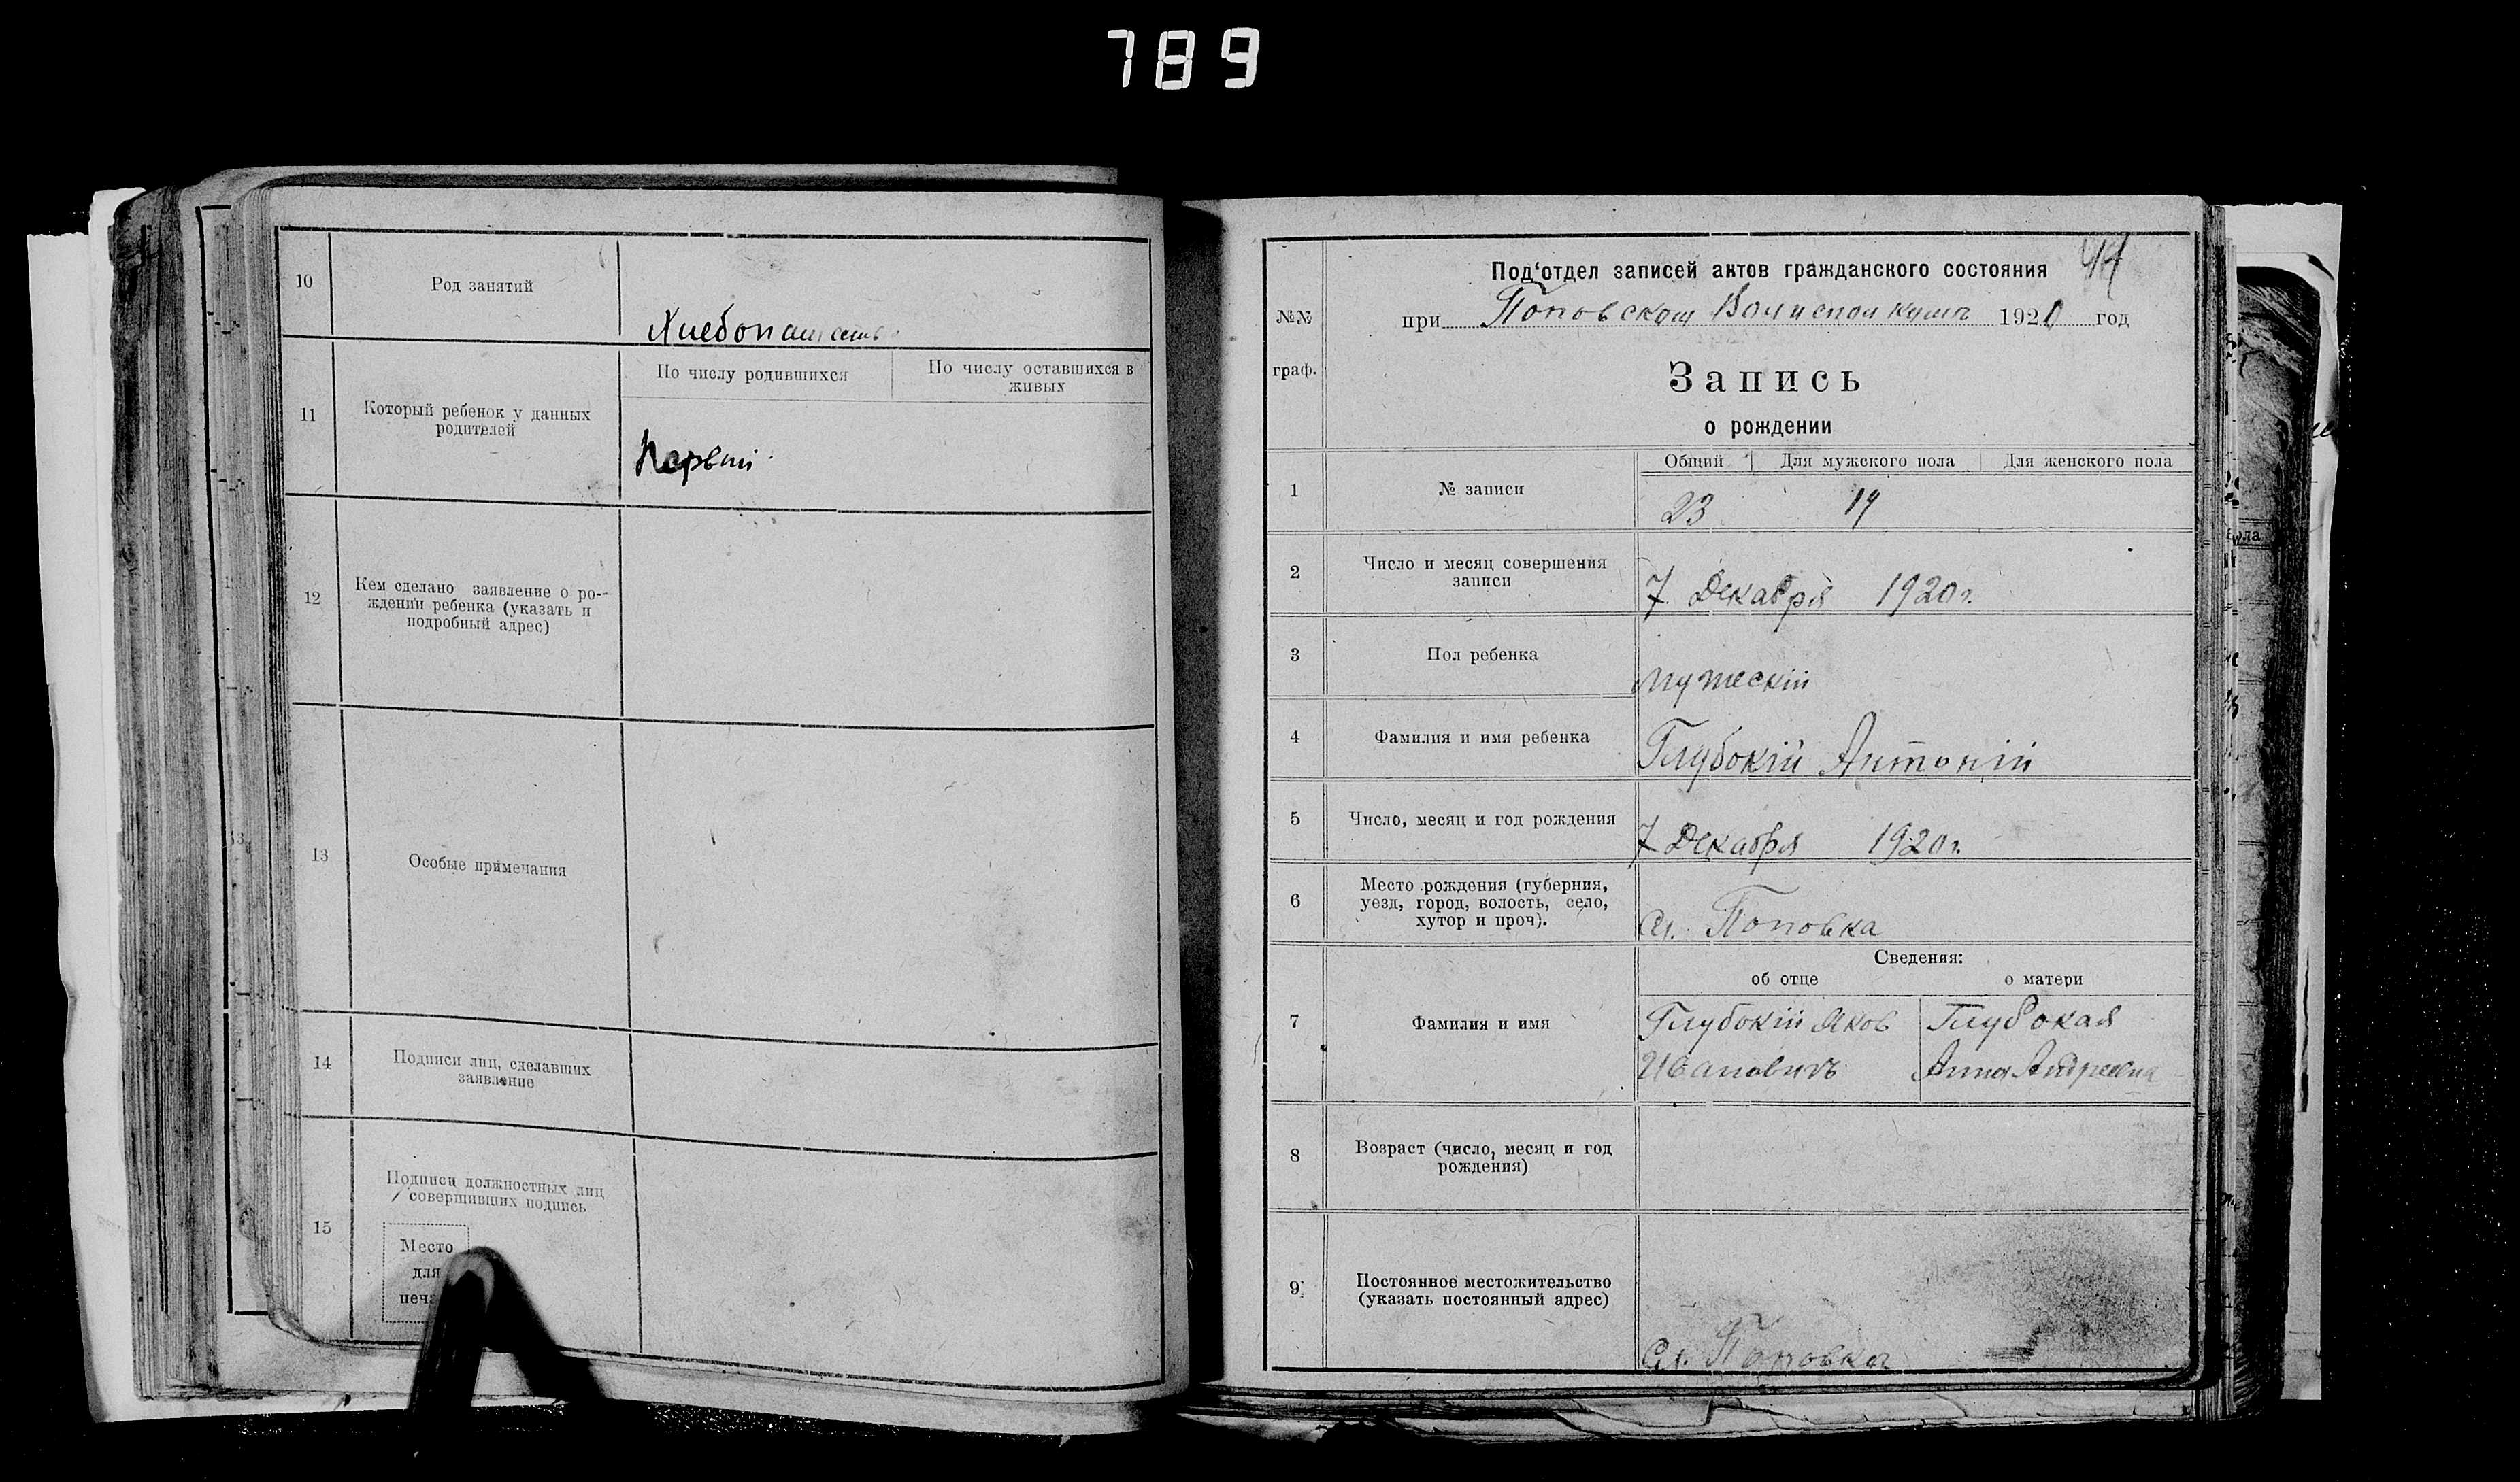 789
10
Род занятий
Хлебопашество
11
Который ребенок у данных
родителей
По числу родившихся
По числу оставшихся в
живых
Первый
12
Кем сделано заявление о ро-
ждении ребенка (указать и
подробный адрес)
13
Особые примечания
14
Подписи лиц, сделавших
заявление
15
Подписи должностных лиц
совершивших подпись
Место
для
печа
44
Под‘отдел записей актов гражданского состояния
№№
при Поповском 1920 год
граф.
Запись
о рождении
Общий Для мужского пола Для женского пола
1
№ записи
23 14
2
Число и месяц совершения
записи
7 Декабря 1920 г.
3
Пол ребенка
Мужескій
4
Фамилия и имя ребенка
Глубокій Антоній
5
Число, месяц и год рождения
7 Декабря 1920 г.
6
Место рождения (губерния,
уезд, город, волость, село,
хутор и проч).
Сл. Поповка
Сведения:
об отце о матери
7
Фамилия и имя
Глубокій Яков
Ивановичъ
Глубокая
Анна Андреевна
8
Возраст (число, месяц и год
рождения)
9
Постоянное местожительство
(указать постоянный адрес)
Сл. Поповка